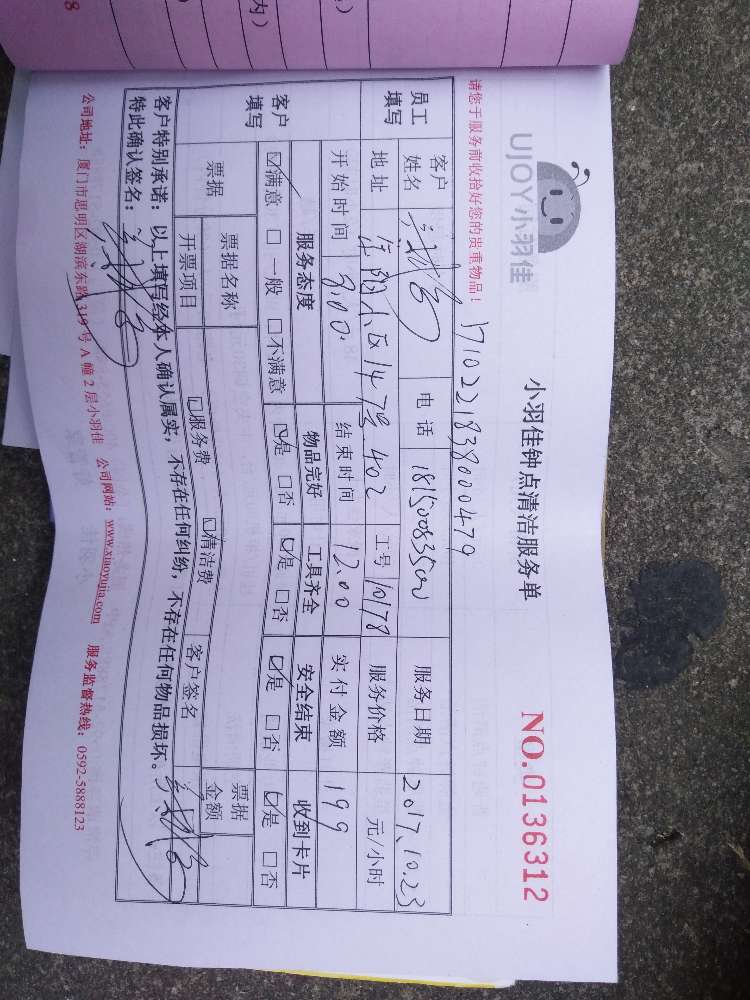 UJOY小羽佳
小羽佳钟点清洁服务单
NO.0136312
请您于服务前收拾好您的贵重物品!
员工填写
客户姓名
电话 18150083500
服务日期 2017.10.23
地址 147号402
工号 10178
服务价格 元/小时
开始时间 8:00.
结束时间 12.00
实付金额 199
客户填写
服务态度 物品完好 工具齐全 安全结束 收到卡片
☑满意 □一般 □不满意 ☑是 □否 ☑是 □否 ☑是 □否 ☑是 □否
票据 票据名称 客户签名 票据金额
开票项目 □服务费 □清洁费
客户特别承诺:以上填写经本人确认属实,不存在任何纠纷,不存在任何物品损坏。
特此确认签名:
公司地址:厦门市思明区湖滨东路319号A幢2层小羽佳 公司网站:www.xiaoyujia.com 服务监督热线:0592-5888123